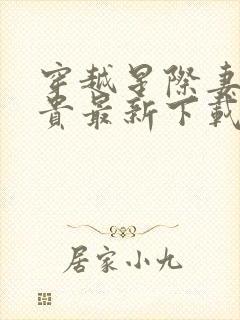 穿越星際妻
貴最新下載
居家小九